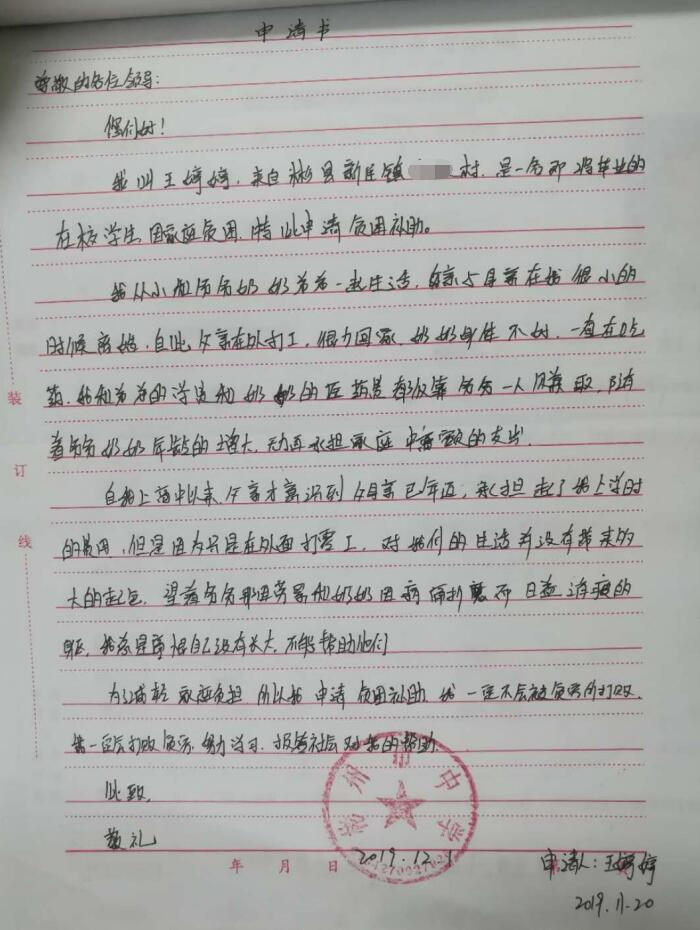 申请书
尊敬的各位领导：
您们好！
我叫王婷婷，来自彬县新民镇村，是一名即将毕业的
在校学生，因家庭贫困，特此申请贫困补助。
我从小和爷爷奶奶爸爸一起生活，父亲与母亲在我很小的
时候离婚，自此父亲在外打工，很少回家，奶奶身体不好，一直在吃
药，我和爸爸的学费和奶奶的医药费都仅靠爷爷一人赚取，随
着爷爷奶奶年龄的增大，无力再承担家庭中高额的支出.
自我上高中以来，父亲才意识到父母亲已年迈，承担起了我上学时
的费用，但是因为只是在外面打零工，对我们的生活并没有带来多
大的起色，望着爷爷那因劳累和奶奶因病痛折磨而日益消瘦的
身躯，我总是自己没有长大，不能帮助他们
为了减轻家庭负担，所以我申请贫困补助，我一定不会被贫穷所打败，
我一定会打败贫穷，努力学习，报答社会对我的帮助.
此致，
敬礼
年 月 日 2019.12.1
申请人：王婷婷
2019.11.20
装
订
线
彬州市中学